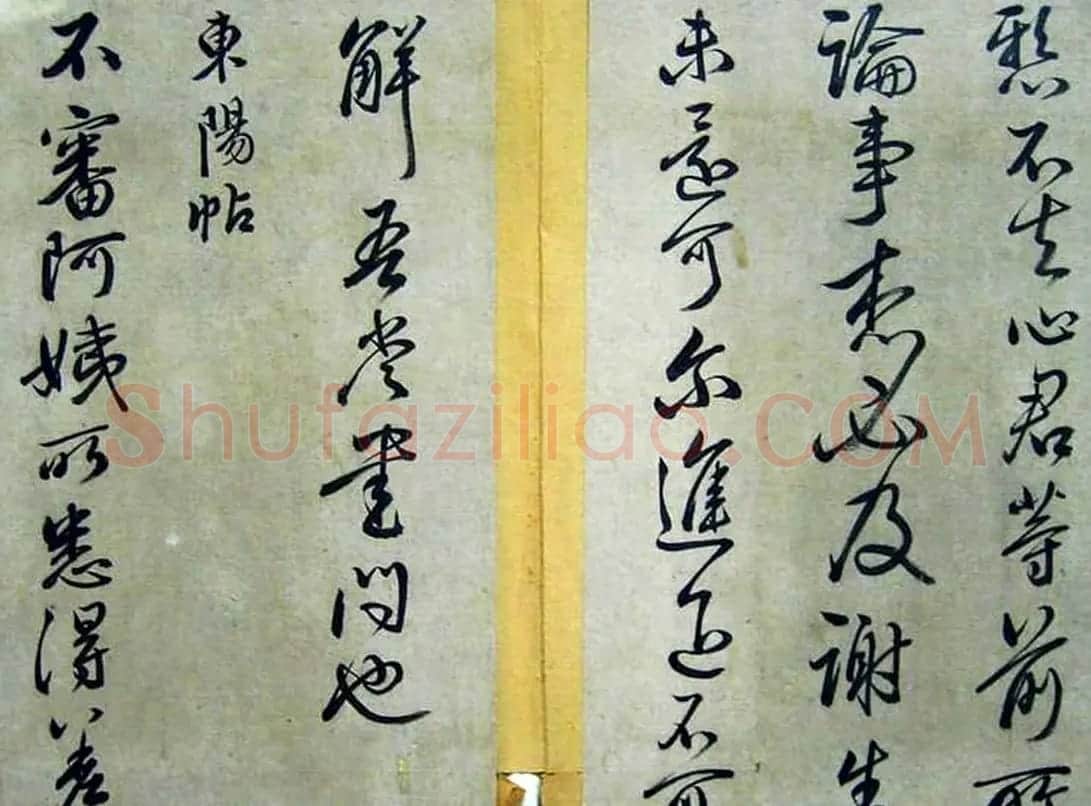 不去心君等前所
論事想必及謝生
未還可尓進退不可
解吾當書問也
東陽帖
不審阿姨所患得差
Shufaziliao.COM